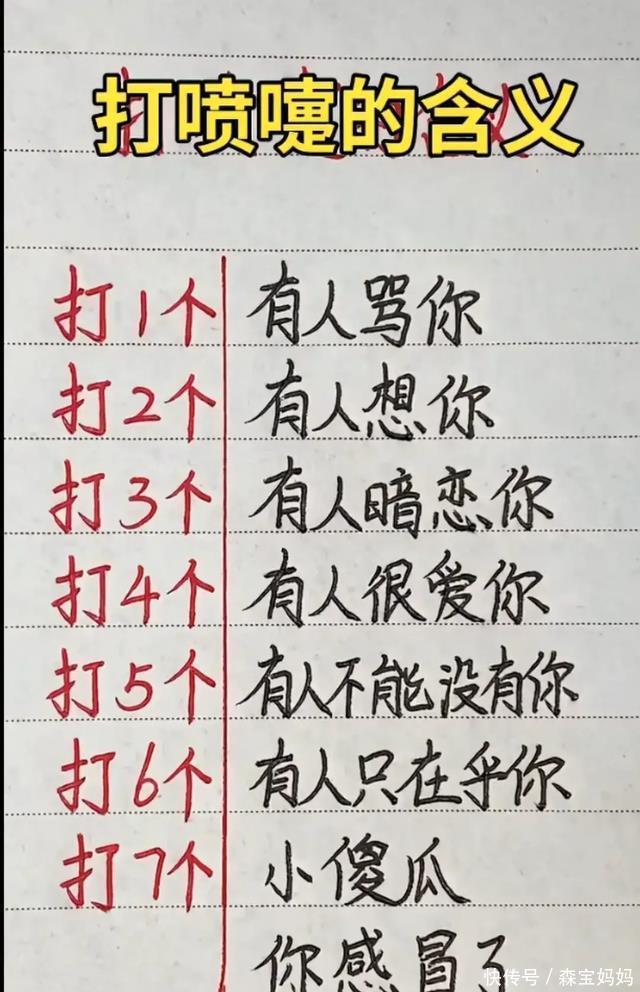 打喷嚏的含义
打1个 有人骂你
打2个 有人想你
打3个 有人暗恋你
打4个 有人很爱你
打5个 有人不能没有你
打6个 有人只在乎你
打7个 小傻瓜
你感冒了
快传号/森宝妈妈